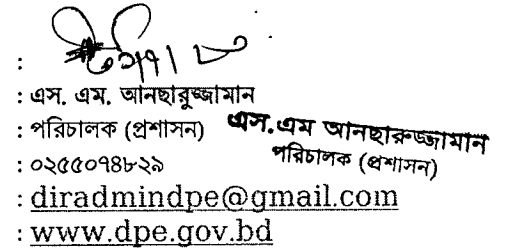 :
: এস. এম. আনছারুজ্জামান
: পরিচালক (প্রশাসন)
এস.এম আনছারুজ্জামান
পরিচালক (প্রশাসন)
: ০২৫৫০৭৪৮২৯
: diradmindpe@gmail.com
: www.dpe.gov.bd